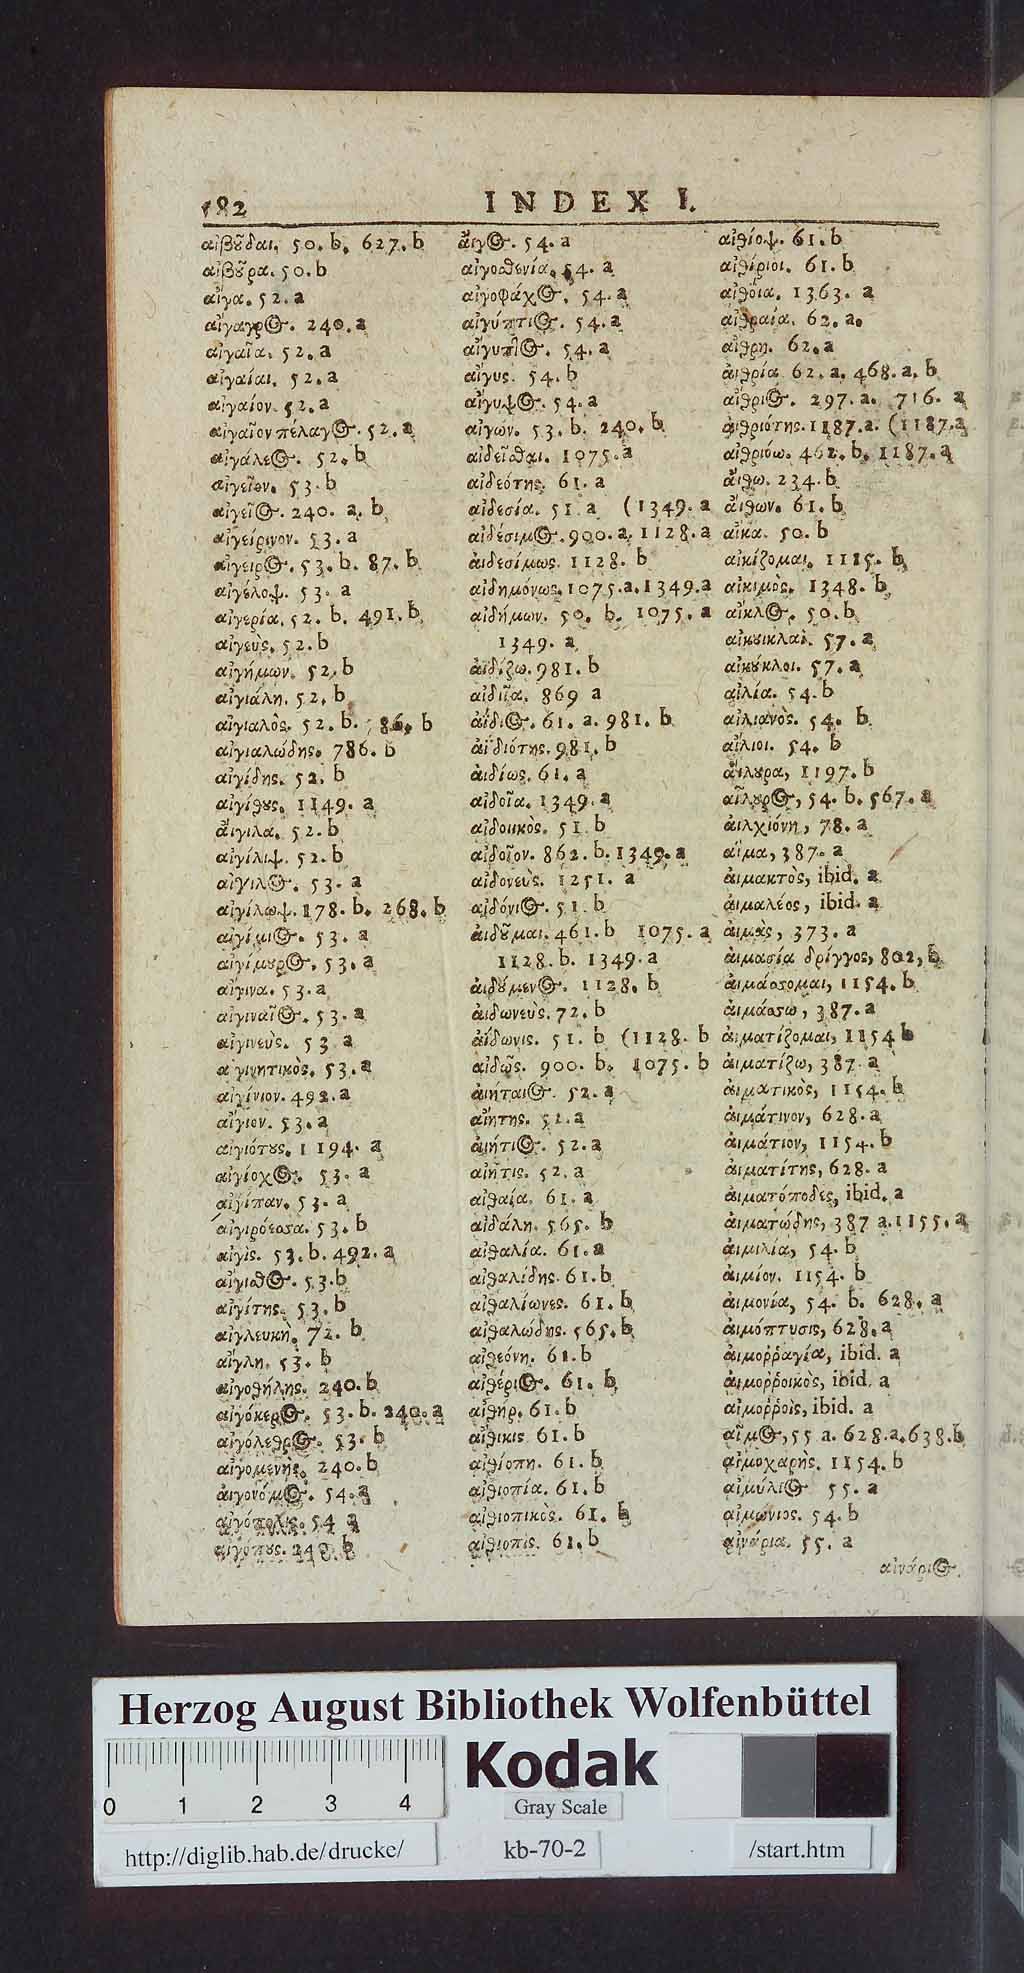 182
INDEX I.
αἰβοῦδαι. 50. b. 627. b
αἰβοῦρα. 50. b
αἶγα. 52. a
αἴγαγρος. 240. a
αἰγαῖα. 52. a
αἰγαίαι. 52. a
αἰγαίον. 52. a
αἰγαῖον πέλαγος. 52. a
αἰγάλεος. 52. b
αἰγεῖον. 53. b
αἰγεῖος. 240. a. b
αἰγείρινον. 53. a
αἴγειρος. 53. b. 87. b
αἰγέλοψ. 53. a
αἰγερία. 52. b. 491. b
αἰγεὺς. 52. b
αἰγήμων. 52. b
αἰγιάλη. 52. b
αἰγιαλὸς. 52. b. 86. b
αἰγιαλώδης. 786. b
αἰγίδης. 52. b
αἰγίθους. 1149. a
αἴγιλα. 52. b
αἰγίλιψ. 52. b
αἴγιλος. 53. a
αἰγίλωψ. 178. b. 268. b
αἰγίμιος. 53. a
αἰγίμουρος. 53. a
αἴγινα. 53. a
αἰγιναῖος. 53. a
αἰγινεὺς. 53 a
αἰγινητικὸς. 53. a
αἰγίνιον. 492. a
αἴγιον. 53. a
αἰγιότους. 1194. a
αἰγίοχος. 53. a
αἰγίπαν. 53. a
αἰγιρόεσσα. 53. b
αἰγὶς. 53. b. 492. a
αἴγισθος. 53. b
αἰγίτης. 53. b
αἰγλευκὴ. 72. b
αἴγλη. 53. b
αἰγοθήλης. 240. b
αἰγόκερος. 53. b. 240. a
αἰγόλεθρος. 53. b
αἰγομενὴς. 240. b
αἰγονόμος. 54. a
αἰγόπολις. 54 a
αἰγόπους. 240. b
αἰγος. 54. a
αἰγοσθενία. 54. a
αἰγοφάχος. 54. a
αἰγύπτιος. 54. a
αἴγυπτος. 54. a
αἴγυς. 54. b
αἴγυψος. 54. a
αἰγων. 53. b. 240. b
αἰδεῖσθαι. 1075. a
αἰδεότης. 61. a
αἰδεσία. 51 a (1349. a
αἰδέσιμος. 900. a. 1128. a
αἰδεσίμως. 1128. b
αἰδημόνως. 1075. a. 1349. a
αἰδήμων. 50. b. 1075. a
1349. a
ἀϊδίζω. 981. b
αἰδιῖα. 869 a
ἀΐδιος. 61. a. 981. b
ἀϊδιότης. 981. b
ἀιδίως. 61. a
αἰδοῖα. 1349. a
αἰδοιικὸς. 51. b
αἰδοῖον. 862. b. 1349. a
αἰδονεὺς. 1251. a
αἰδόνιος. 51. b
ἀιδοῦμαι. 461. b 1075. a
1128. b. 1349. a
ἀιδούμενος. 1128. b
ἀιδωνεὺς. 72. b
αἴδωνις. 51. b (1128. b
αἰδῶς. 900. b. 1075. b
ἀιήταιος. 52. a
αἰήτης. 52. a
ἀιήτιος. 52. a
αἰῆτις. 52. a
αἰθαία. 61. a
αἰθάλη. 565. b
αἰθαλία. 61. a
αἰθαλίδης. 61. b
αἰθαλίωνες. 61. b
αἰθαλώδης. 565. b
αἰθεόνη. 61. b
αἰθέριος. 61. b
αἰθὴρ. 61. b
αἴθικις 61. b
αἰθίοπη. 61. b
αἰθιοπία. 61. b
αἰθιοπικὸς. 61. b
αἰθιοπὶς. 61. b
αἰθίοψ. 61. b
αἰθίριοι. 61. b
αἰθοῖα. 1363. a
αἰθραία. 62. a.
αἴθρη. 62. a
ἀιθρία 62. a. 468. a. b
αἴθριος. 297. a. 716. a
ἀιθριότης. 1187. a. (1187. a
αἰθριόω. 462. b. 1187. a
ἄιθω. 234. b
ἄιθων. 61. b
αἶκα. 50. b
αἰκίζομαι. 1185. b
αἰκιμὸς. 1348. b
αἶκλος. 50. b
αἰκουικλαὶ. 57. a
αἰκούκλοι. 57. a
αἰλία. 54. b
αἰλιανὸς. 54. b
αἴλιοι. 54. b
αἴλουρα, 1197. b
αἴλουρος, 54. b. 567. a
ἀιλχιόνη, 78. a
αἷμα, 387. a
ἀιμακτὸς, ibid. a
ἀιμαλέος, ibid. a
ἀιμὰς, 373. a
ἀιμασία δρίγγος, 802, b
ἀιμάσσομαι, 1154. b
ἀιμάσσω, 387. a
ἀιματίζομαι, 1154 b
ἀιματίζω, 387. a
ἀιματικὸς, 1154. b
ἀιμάτινον, 628. a
ἀιμάτιον, 1154. b
ἀιματίτης, 628. a
ἀιματόποδες, ibid. a
ἀιματώδης, 387 a. 1155. a
ἀιμιλία, 54. b
ἀιμίον. 1154. b
ἀιμονία, 54. b. 628. a
ἀιμόπτυσις, 628. a
ἀιμοῤῥαγία, ibid. a
ἀιμοῤῥοικὸς, ibid. a
αἱμοῤῥοὶς, ibid. a
αἷμος, 55 a. 628. a. 638. b
αἱμοχαρὴς. 1154. b
αἱμύλιος 55. a
αἱμώνιος. 54. b
αἰνάρια. 55. a
αἰνάριος.
Herzog August Bibliothek Wolfenbüttel
0 1 2 3 4
Kodak
Gray Scale
http://diglib.hab.de/drucke/
kb-70-2
/start.htm